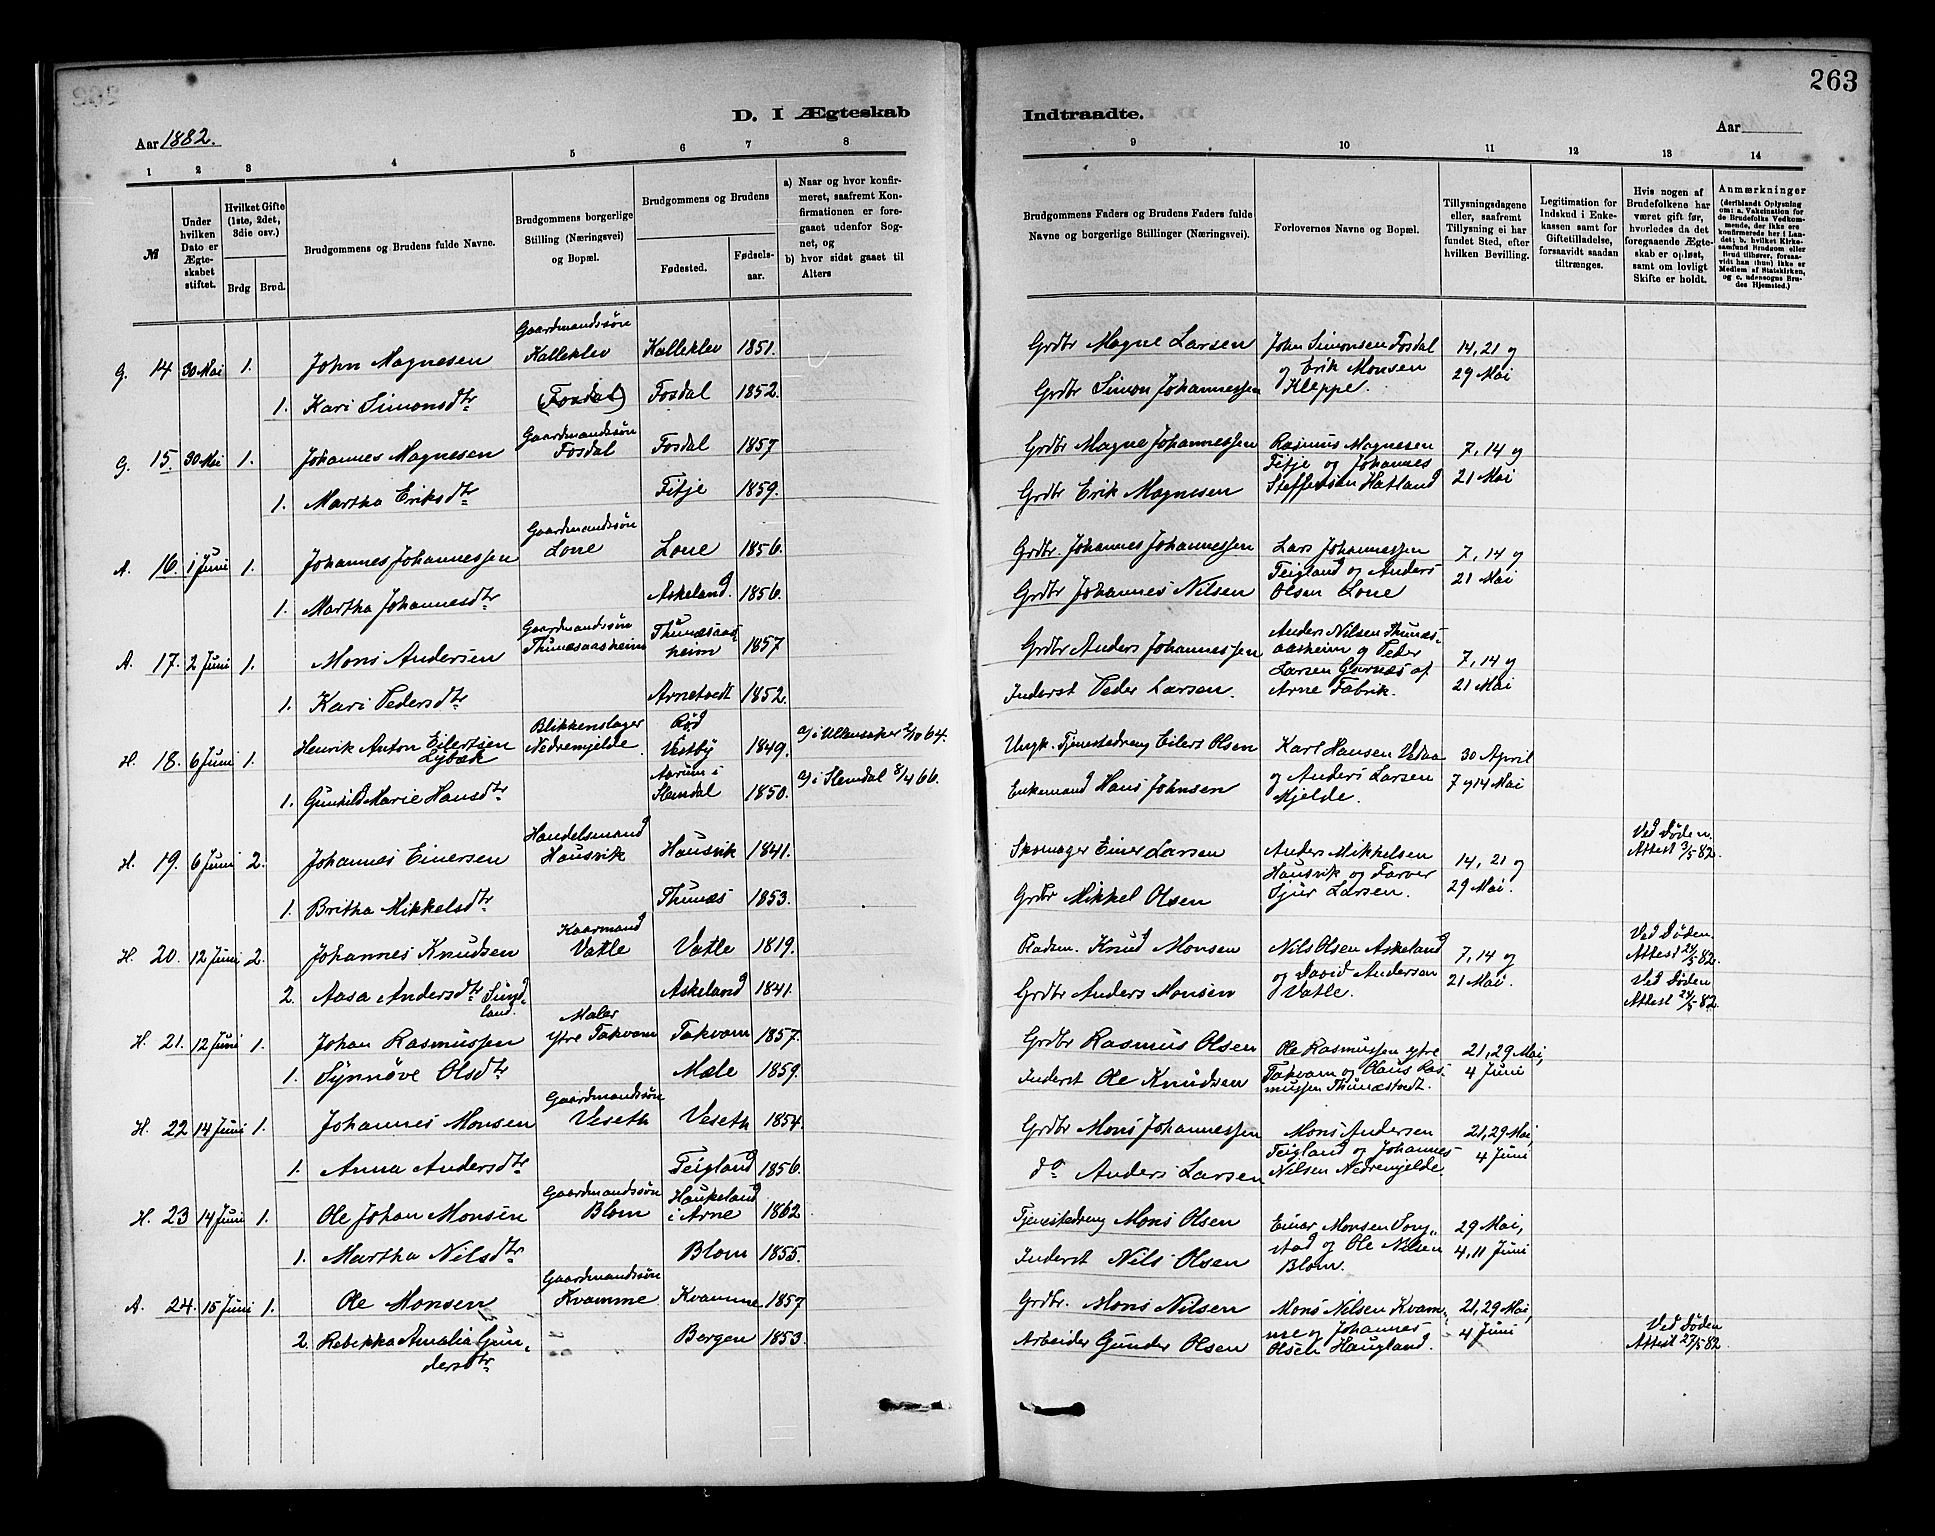 263
D. I Ægteskab Indtraadte.
Aar 1882. Aar
1 2 3 4 5 6 7 8 9 10 11 12 13 14
№
Under hvilken Dato er Ægteskabet stiftet.
Hvilket Gifte (1ste, 2det, 3die osv.)
Brdg Brud.
Brudgommens og Brudens fulde Navne.
Brudgommens borgerlige Stilling (Næringsvei) og Bopæl.
Brudgommens og Brudens
Fødested. Fødselsaar.
a) Naar og hvor konfirmeret, saafremt Konfirmationen er foregaaet udenfor Sognet, og
b) hvor sidst gaaet til Alters
Brudgommens Faders og Brudens Faders fulde Navne og borgerlige Stillinger (Næringsvei).
Forlovernes Navne og Bopæl.
Tillysningsdagene eller, saafremt Tillysning ei har fundet Sted, efter hvilken Bevilling.
Legitimation for Indskud i Enkekassen samt for Giftetilladelse, forsaavidt saadan tiltrænges.
Hvis nogen af Brudefolkene har været gift før, hvorledes da det foregaaende Ægteskab er opløst, samt om lovligt Skifte er holdt.
Anmærkninger (deriblandt Oplysning om: a. Vakcination for de Brudefolks Vedkommende, der ikke ere konfirmerede her i Landet; b. hvilket Kirkesamfund Brudgom eller Brud tilhører, forsaavidt han (hun) ikke er Medlem af Statskirken, og c. udensogns Brudes Hjemsted.)
G. 14 30 Mai 1. John Magnesen Gaardmandssøn Kalleklev Kalleklev 1851. Grdbr Magne Larsen John Simonsen Fosdal og Erik Monsen Kleppe. 14, 21 og 29 Mai
1. Kari Simonsdtr (Fosdal) Fosdal 1852. Grdbr Simon Johannessen
G. 15. 30 Mai 1. Johannes Magnesen Gaardmandssøn Fosdal Fosdal 1857 Grdbr Magne Johannessen Rasmus Magnesen Fitje og Johannes Steffensen Hatland 7, 14 og 21 Mai
1. Martha Eriksdtr Fitje 1859. Grdbr Erik Magnesen
A. 16. 1 Juni 1. Johannes Johannessen Gaardmandssøn Lone Lone 1856. Grdbr. Johannes Johannessen Lars Johannessen Teigland og Anders Olsen Lone 7, 14 og 21 Mai
1. Martha Johannesdtr Askeland. 1856. Grdbr Johannes Nilsen
A. 17. 2 Juni 1. Mons Andersen Gaardmandssøn Thunæsaasheim Thunæsaasheim 1857 Grdbr Anders Johannessen Anders Nilsen Thunæsaasheim og Peder Larsen Garnæs af Arne Fabrik. 7, 14 og 21 Mai
1. Kari Pedersdtr Arnetvedt 1852. Inderst Peder Larsen.
H. 18. 6 Juni 1. Henrik Anton Eilertsen Lybæk Blikkenslager Nedremjelde. Rød Vestby 1849. a/ i Ullensaker 2/10 64. Ungk. Tjenestedreng Eilert Olsen Karl Hansen Vedaa og Anders Larsen Mjelde. 30 April 7 og 14 Mai
1. Gunhild Marie Hansdtr Aarum i Slemdal 1850. a/ i Slemdal 8/4 66. Enkemand Hans Johnsen
H. 19. 6 Juni 2. Johannes Einersen Handelsmand Hausvik Hausvik 1841. Skomager Einer Larsen Anders Mikkelsen Hausvik og Farver Sjur Larsen. 14, 21 og 29 Mai. Ved Døden. Attest 3/5 82.
1. Britha Mikkelsdtr Thunæs 1853. Grdbr Mikkel Olsen
H. 20. 12 Juni 2. Johannes Knudsen Kaarmand Vatle Vatle 1819. Pladsm. Knud Monsen Nils Olsen Askeland og David Andersen Vatle. 7, 14 og 21 Mai. Ved Døden. Attest 24/5 82.
2. Aasa Andersdtr Sundland. Askeland 1841. Grdbr Anders Monsen Ved Døden Attest 24/5 82.
H. 21. 12 Juni 1. Johan Rasmussen Maler ytre Takvam Takvam 1857. Grdbr Rasmus Olsen Ole Rasmussen ytre Takvam og Olaus Rasmussen Thunæstvedt. 21, 29 Mai, 4 Juni
1. Synnøve Olsdtr Mæle 1859. Inderst Ole Knudsen
H. 22 14 Juni 1. Johannes Monsen Gaardmandssøn Veseth Veseth 1854. Grdbr Mons Johannessen Mons Andersen Teigland og Johannes Nilsen Nedremjelde 21, 29 Mai, 4 Juni
1. Anna Andersdtr Teigland 1856. do Anders Larsen
H. 23 14 Juni 1. Ole Johan Monsen Gaardmandssøn Blom Haukeland i Arne 1862 Tjenestedreng Mons Olsen Einar Monsen Songstad og Ole Nilsen Blom. 29 Mai, 4, 11 Juni
1. Martha Nilsdtr Blom 1855. Inderst Nils Olsen
A. 24. 15 Juni 1. Ole Monsen Gaardmandssøn Kvamme Kvamme 1857 Grdbr. Mons Nilsen Mons Nilsen Kvamme og Johannes Olsen Haugland. 21, 29 Mai, 4 Juni
2. Rebekka Amalia Gundersdtr Bergen 1853. Arbeider Gunder Olsen Ved Døden Attest 27/5 82